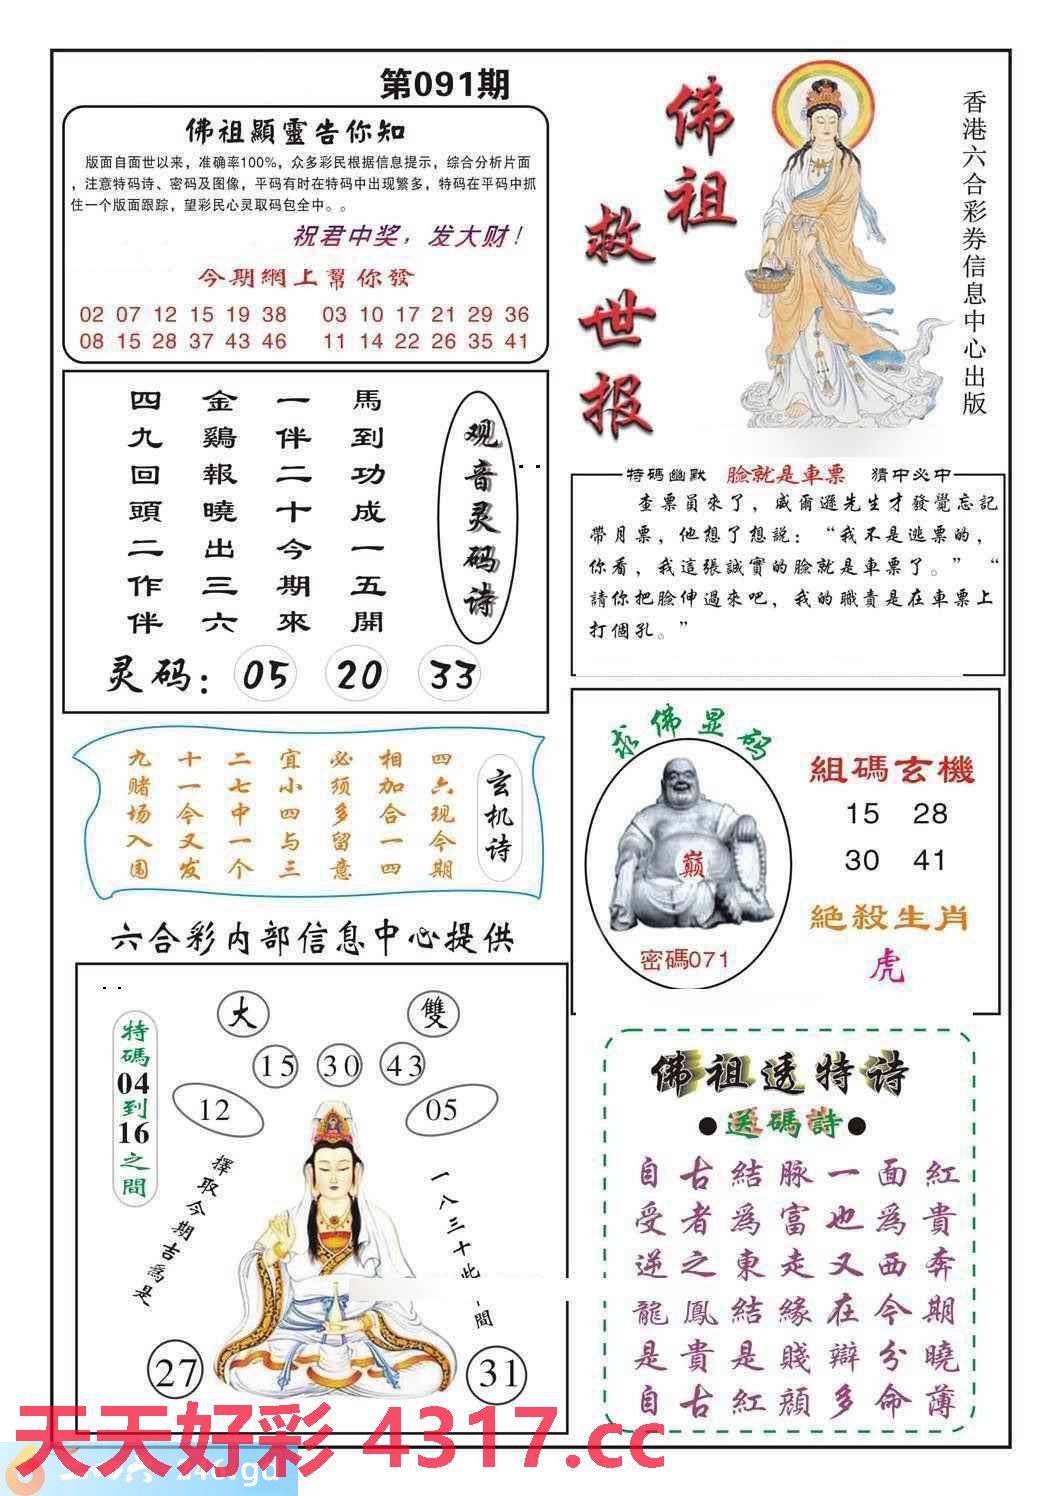 第091期
佛祖顯靈告你知
版面自面世以来，准确率100%，众多彩民根据信息提示，综合分析片面
，注意特码诗、密码及图像，平码有时在特码中出现繁多，特码在平码中抓
住一个版面跟踪，望彩民心灵取码包全中。。
祝君中奖，发大财！
今期網上幫你發
02 07 12 15 19 38 03 10 17 21 29 36
08 15 28 37 43 46 11 14 22 26 35 41
佛祖
救世报
香港六合彩券信息中心出版
观音灵码诗
馬到功成一五開
一伴二十今期來
金鷄報曉出三六
四九回頭二作伴
灵码：05 20 33
特碼幽默 臉就是車票 猜中必中
查票員來了，威爾遜先生才發覺忘記
帶月票，他想了想説：“我不是逃票的，
你看，我這張誠實的臉就是車票了。” “
請你把臉伸過來吧，我的職責是在車票上
打個孔。”
玄机诗
四六现今期
相加合一四
必须多留意
宜小四与三
二七中一个
十一今又发
九赌场入围
求佛显码
巅
密碼071
組碼玄機
15 28
30 41
絶殺生肖
虎
六合彩内部信息中心提供
特碼04到16之間
大 雙
15 30 43
12 05
擇取今期吉爲是
一八三十此間
27 31
佛祖透特诗
●送碼詩●
自古結脉一面紅
受者爲富也爲貴
逆之東走又西奔
龍鳳結緣在今期
是貴是賤辯分曉
自古紅顔多命薄
天天好彩 4317.cc
246.gd